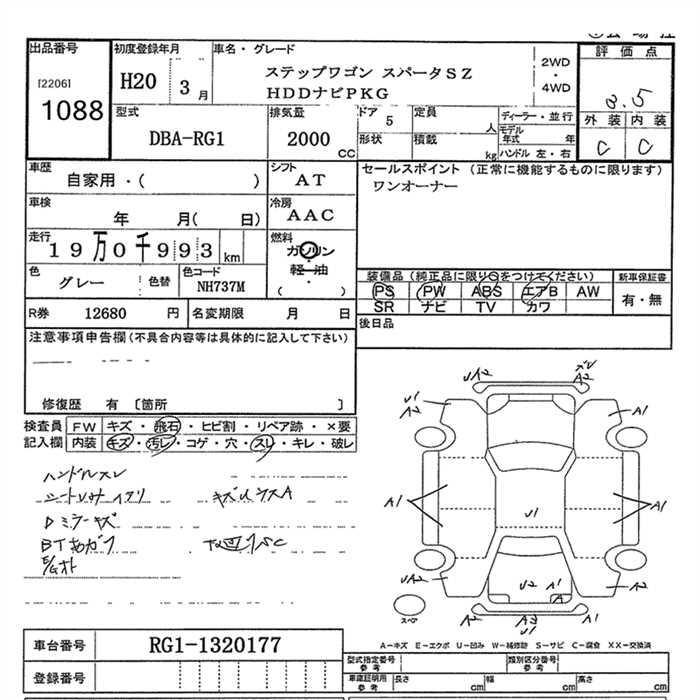 出品番号
[2206]
1088
初度登録年月
H20 3 月
車名・グレード
ステップワゴン スパータSZ
HDDナビPKG
2WD
・
4WD
評価点
3.5
外装 内装
C C
型式
DBA-RG1
排気量
2000 CC
ドア 5
形状
定員 人
積載 kg
ディーラー・並行
モデル年式 年
ハンドル 左・右
車歴
自家用・( )
シフト
AT
車検
年 月( 日)
冷房
AAC
走行
19万0千993 km
燃料
ガソリン
軽・油
( )
色
グレー
色替
色コード
NH737M
セールスポイント (正常に機能するものに限ります)
ワンオーナー
装備品(純正品に限り○をつけてください)
PS PW ABS エアB AW
SR ナビ TV カワ
新車保証書
有・無
R券 12680 円
名変期限 月 日
後日品
注意事項申告欄(不具合内容等は具体的に記入して下さい)
修復歴 有 〔箇所 〕
検査員 FW キズ・飛石・ヒビ割・リペア跡・×要
記入欄 内装 キズ・汚レ・コゲ・穴・スレ・キレ・破レ
ハンドルスレ
Dミラーキズ
UA2
A2
A2
A1
A1
A1
U1
UA2
A2
U2
A1
A1
A2
U1
A2
スペア
A-キズ E-エクボ U-凹み W-補修跡 S-サビ C-腐食 XX-交換済
車台番号
RG1-1320177
登録番号
型式指定番号
参考
類別区分番号
参考
車庫証明用
参考
長さ cm
幅 cm
高さ cm